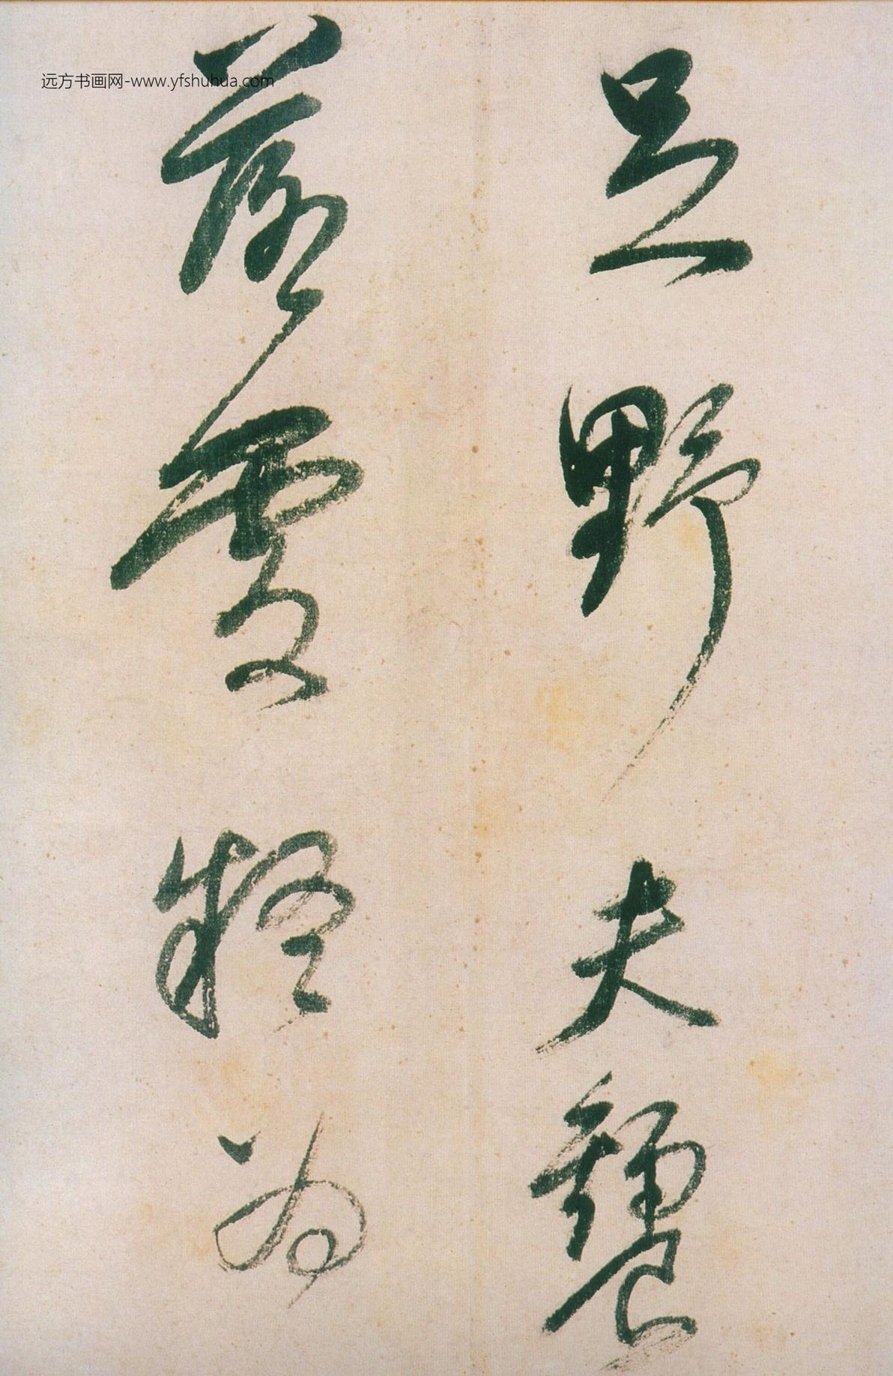 远方书画网-www.yfshuhua.com
足野夫饔
擬為